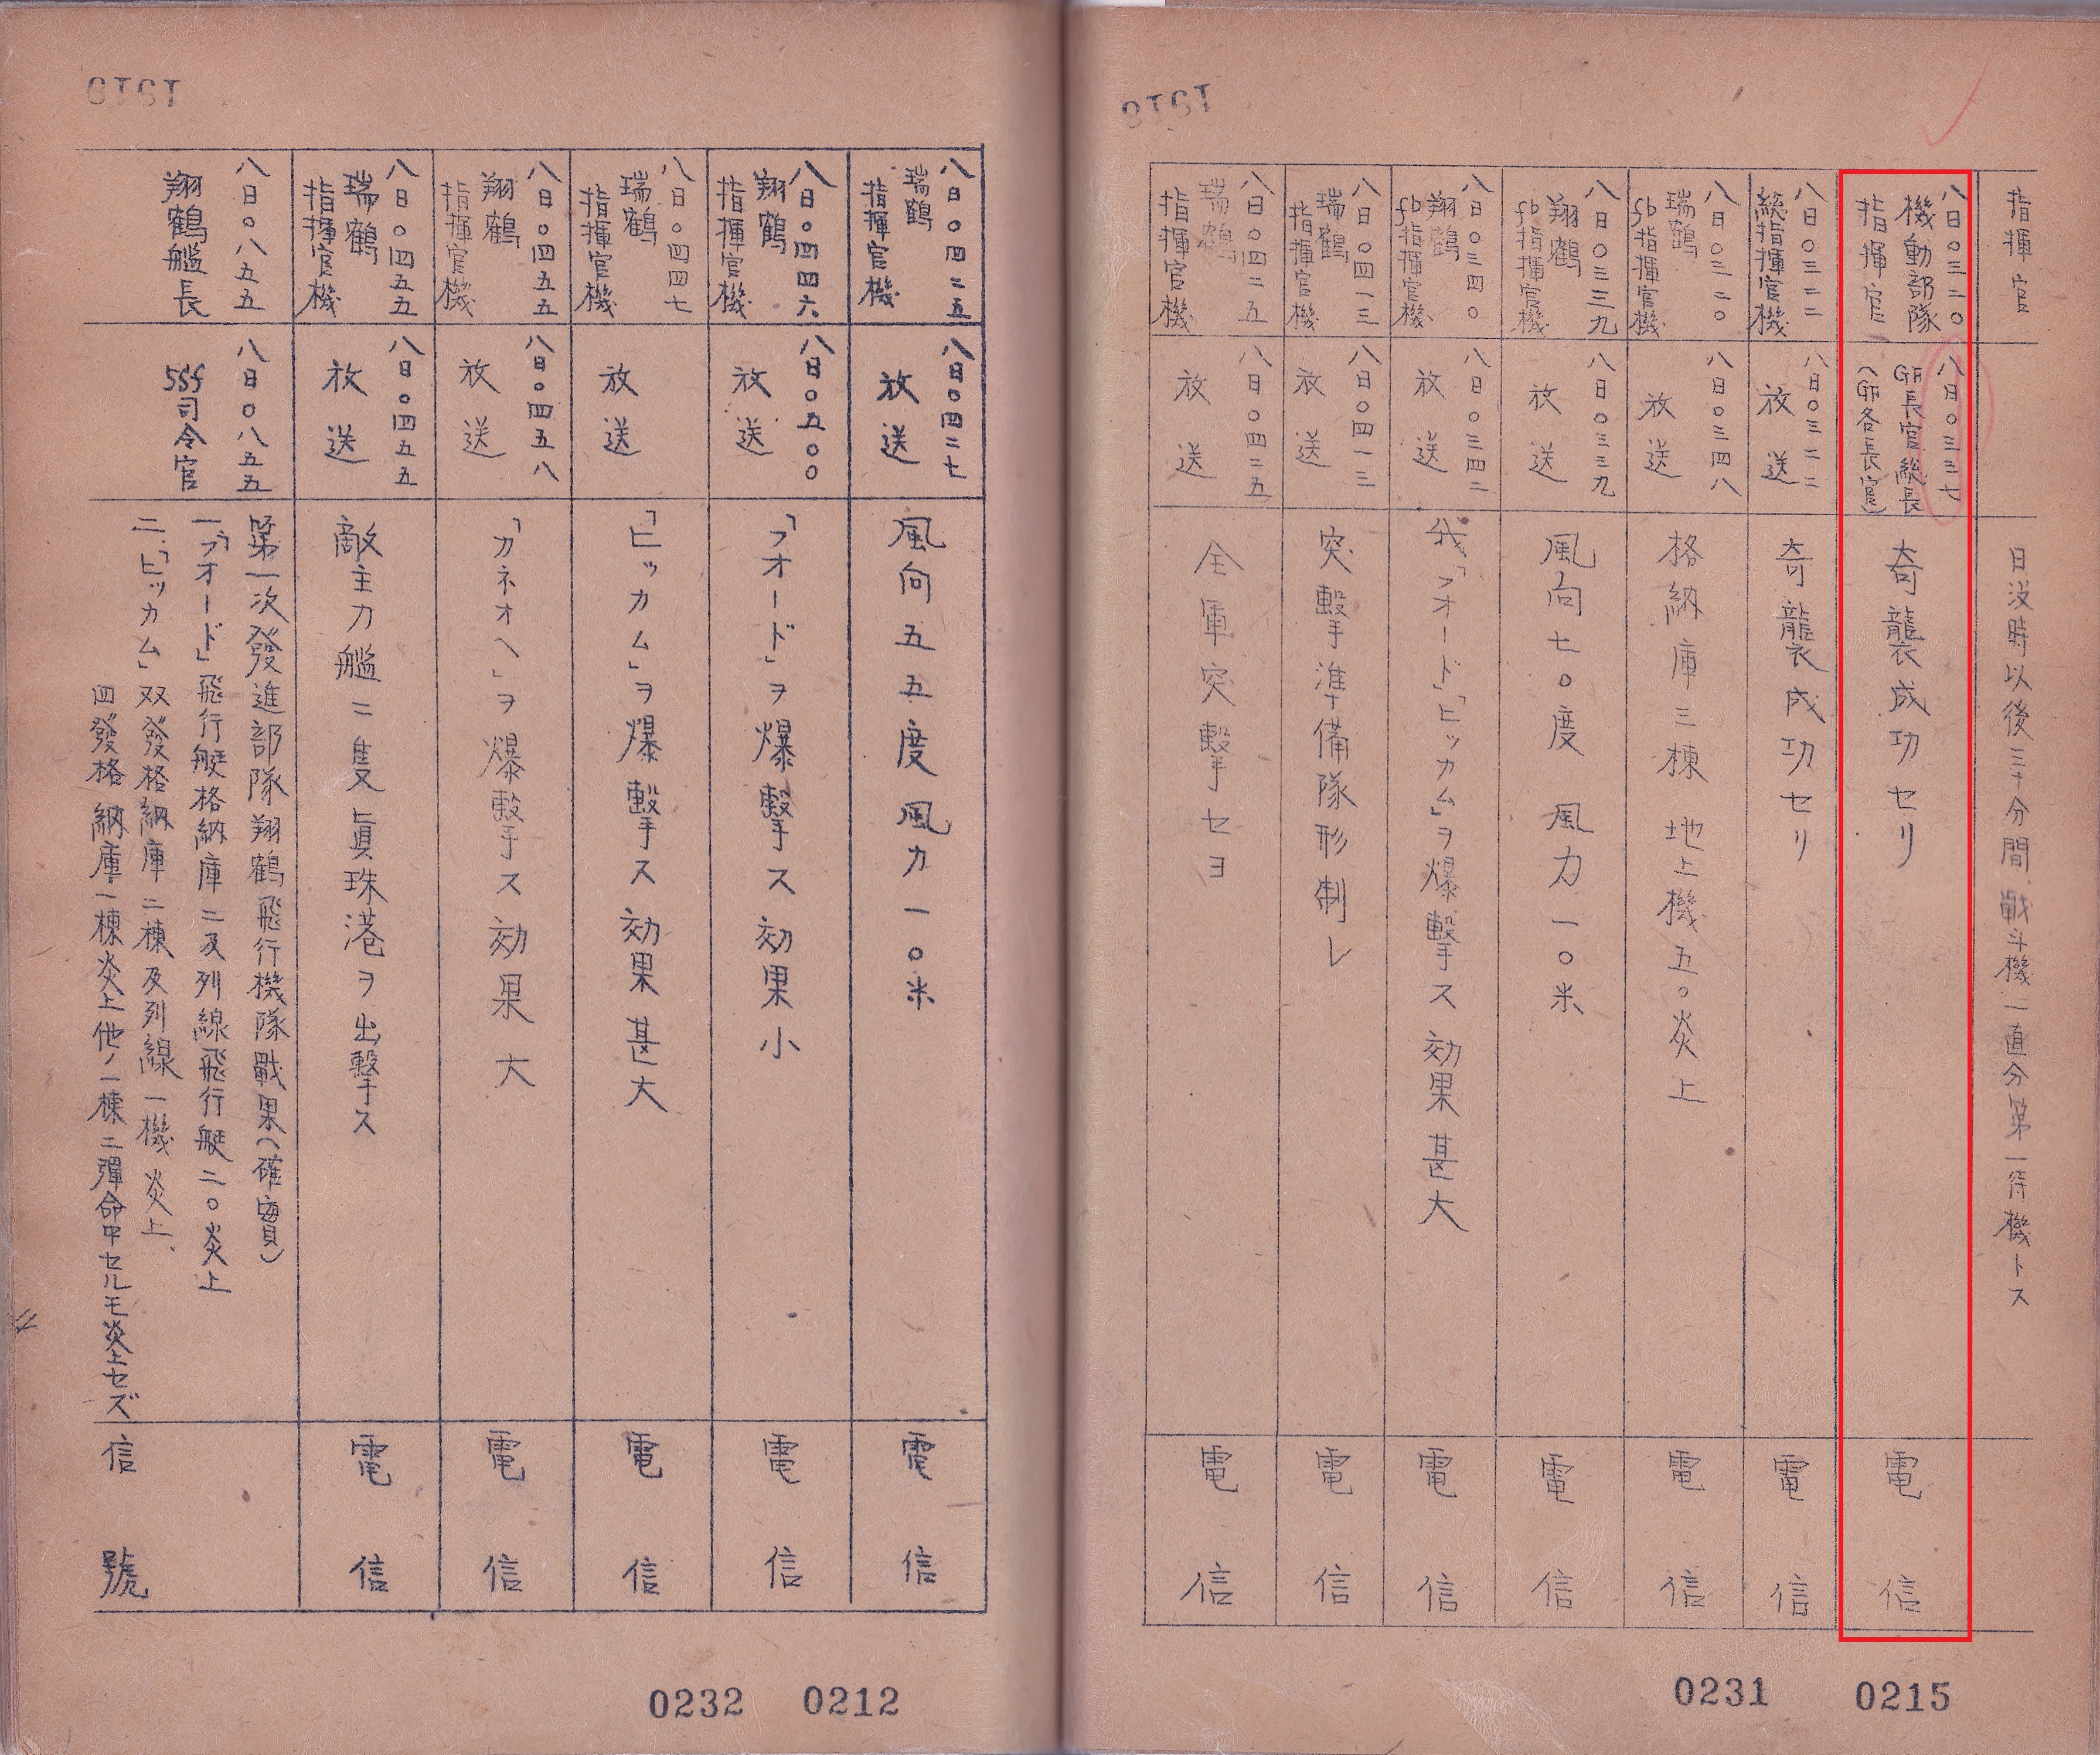 指揮官
日没時以後三十分間戦斗機一直分第一待機トス
八日〇三二〇
機動部隊
指揮官
八日〇三三七
GF長官総長
(GF各長官)
奇襲成功セリ
電信
八日〇三二二
総指揮官機
八日〇三二二
放送
奇襲成功セリ
電信
八日〇三二〇
瑞鶴
fb指揮官機
八日〇三四八
放送
格納庫三棟 地上機五〇炎上
電信
八日〇三三九
翔鶴
fb指揮官機
八日〇三三九
放送
風向七〇度 風力一〇米
電信
八日〇三四〇
翔鶴
fb指揮官機
八日〇三四二
放送
我「フオード」「ヒッカム」ヲ爆撃ス効果甚大
電信
八日〇四一三
瑞鶴
指揮官機
八日〇四一三
放送
突撃準備隊形制レ
電信
八日〇四二五
瑞鶴
指揮官機
八日〇四二五
放送
全軍突撃セヨ
電信
0231 0215
八日〇四二五
瑞鶴
指揮官機
八日〇四二七
放送
風向五五度風力一〇米
電信
八日〇四四六
翔鶴
指揮官機
八日〇五〇〇
放送
「フオード」ヲ爆撃ス効果小
電信
八日〇四四七
瑞鶴
指揮官機
放送
「ヒッカム」ヲ爆撃ス効果甚大
電信
八日〇四五五
翔鶴
指揮官機
八日〇四五八
放送
「カネオヘ」ヲ爆撃ス効果大
電信
八日〇四五五
瑞鶴
指揮官機
八日〇四五五
放送
敵主力艦二隻眞珠港ヲ出撃ス
電信
八日〇八五五
翔鶴艦長
八日〇八五五
5Sf司令官
第一次發進部隊翔鶴飛行機隊戰果(確實)
一、「フオード」飛行艇格納庫二及列線飛行艇二〇炎上
二、「ヒッカム」双發格納庫二棟及列線一機炎上、
四發格納庫一棟炎上他ノ一棟ニ彈命中セルモ炎上セズ
信號
0232 0212